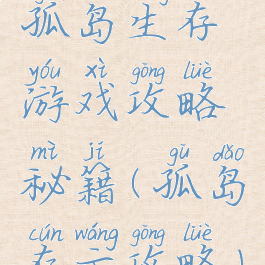 孤岛生存
yóu xì gōng lüè
游戏攻略
mì jí gū dǎo
秘籍(孤岛
cún wáng gōng lüè
存亡攻略)